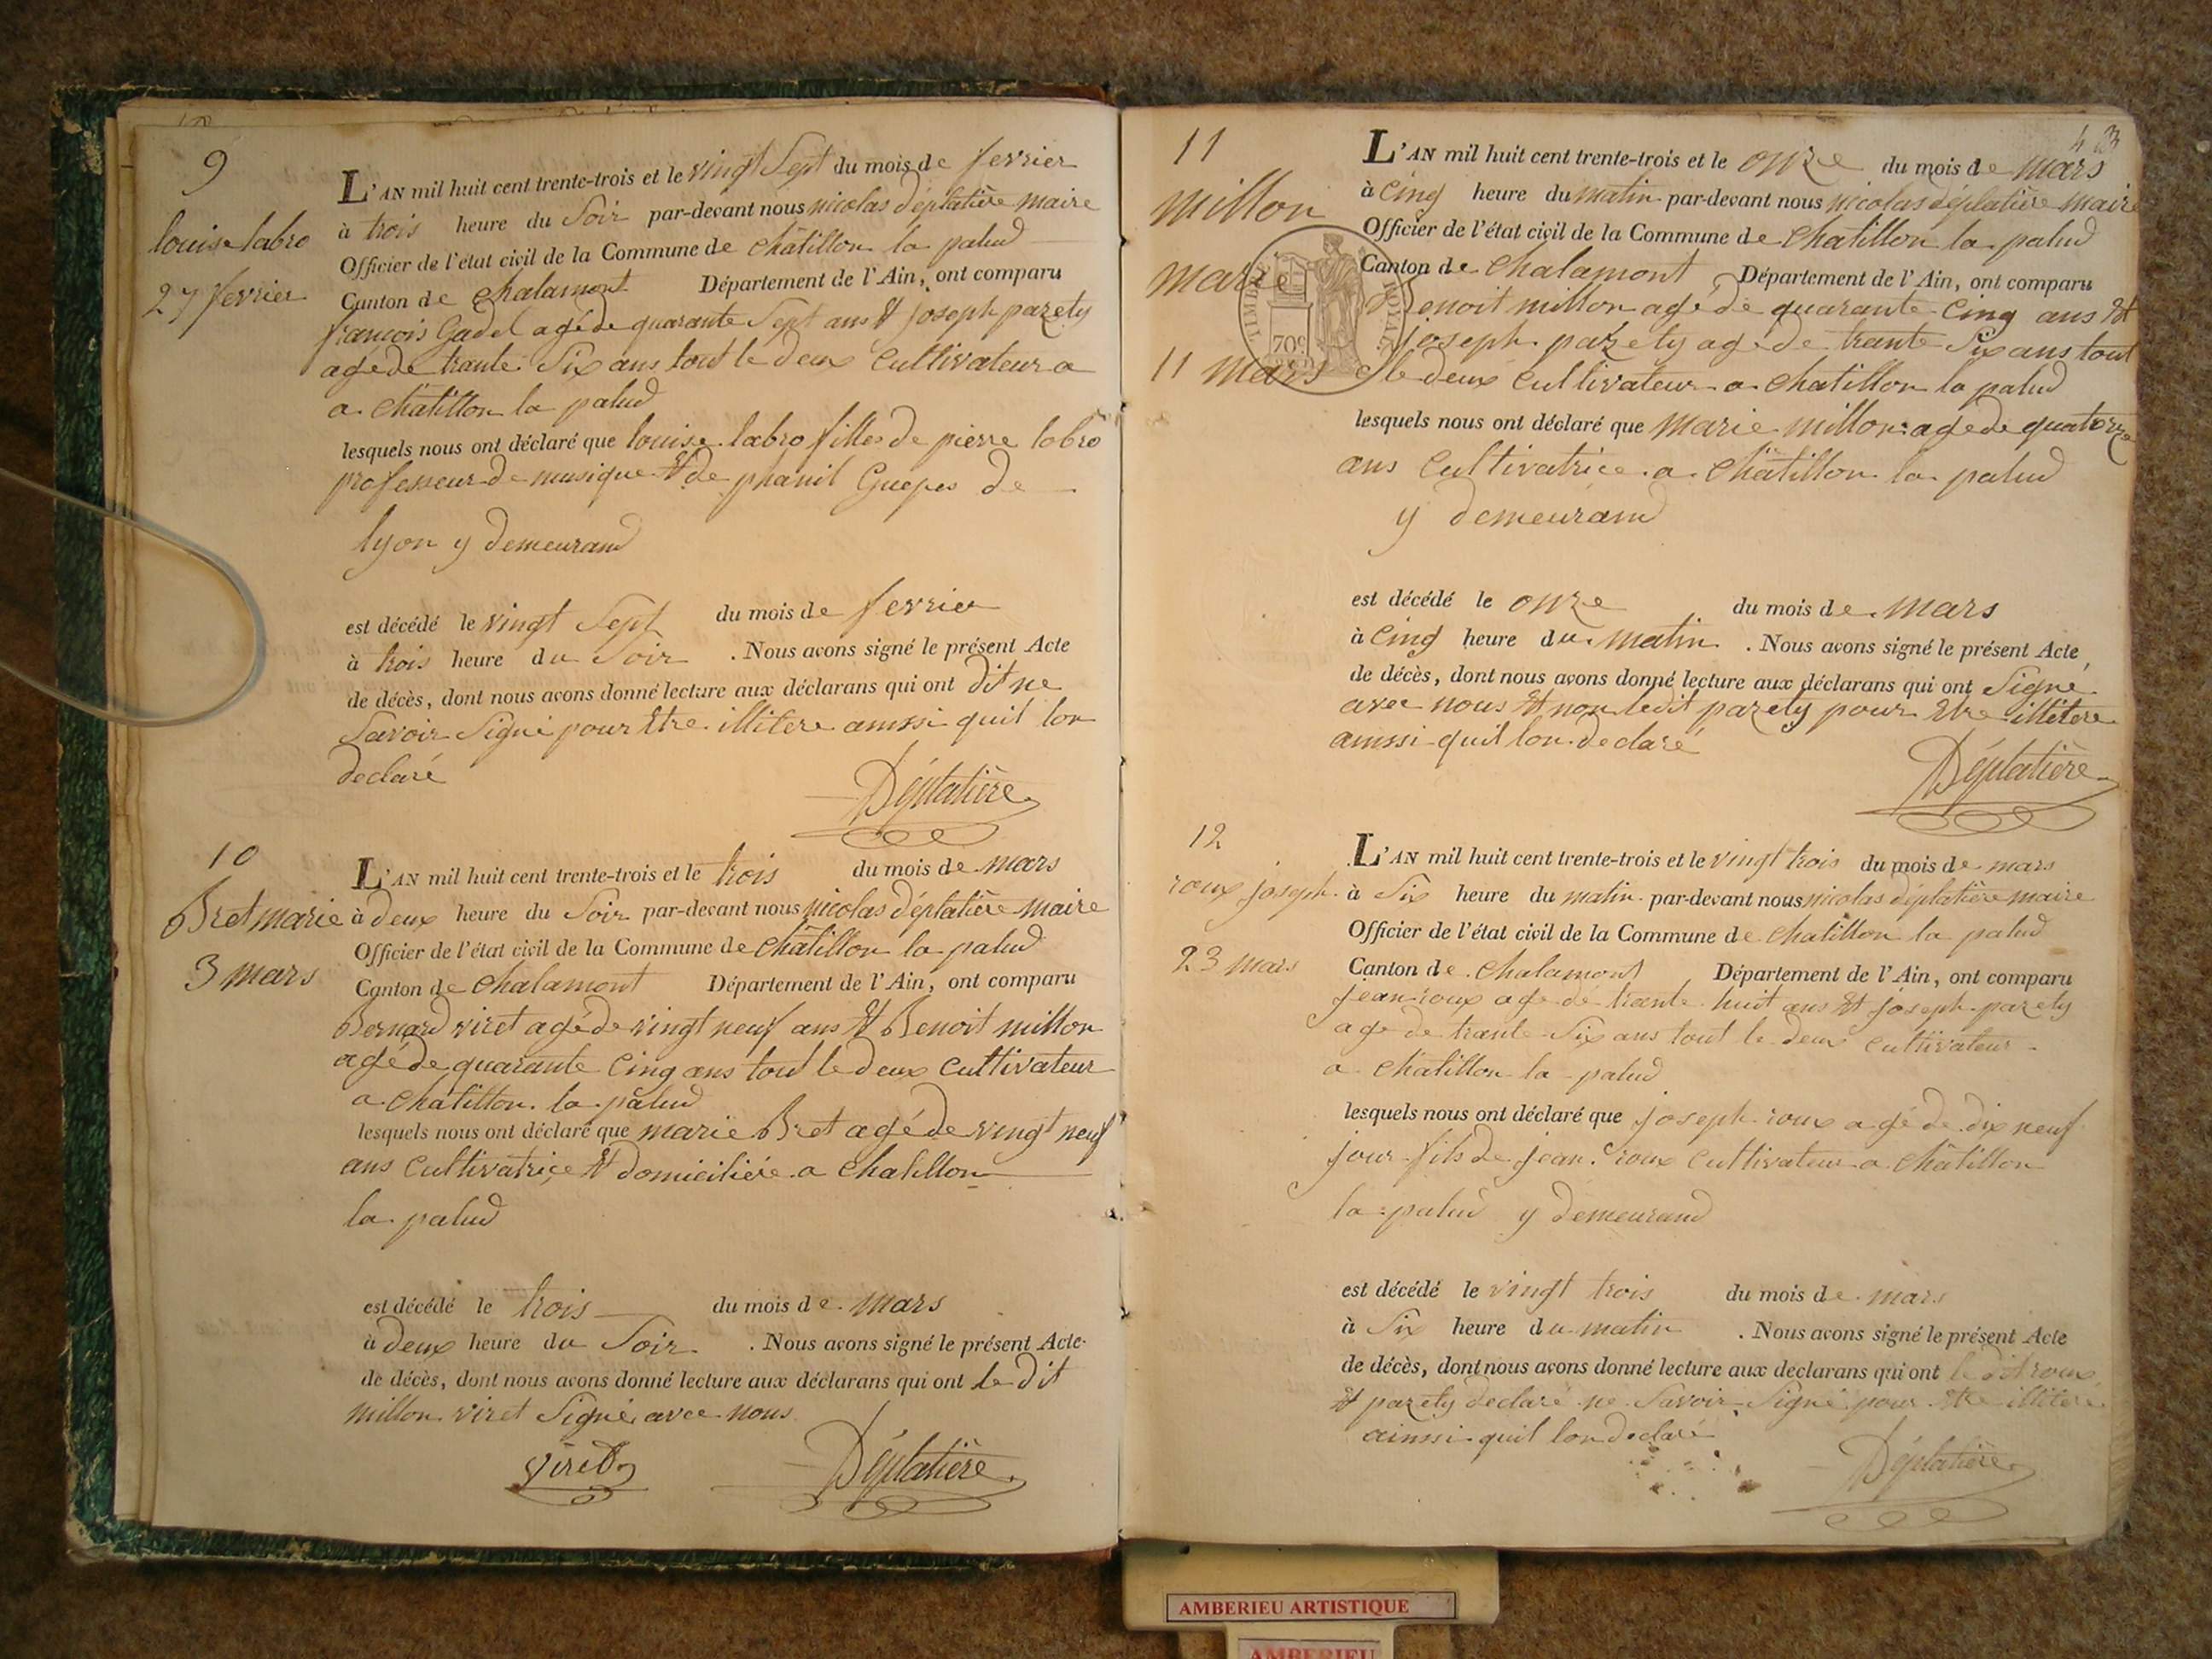 9
louise labro
27 fevrier
L'AN mil huit cent trente-trois et le vingt Sept du mois de fevrier
à trois heure du Soir par-devant nous nicolas déplatière maire
Officier de l'état civil de la Commune de châtillon la palud
Canton de chalamont Département de l'Ain, ont comparu
françois Gadel agé de quarante Sept ans Et joseph parety
agé de trante Six ans tout le deux Cultivateur a
a chatillon la palud
lesquels nous ont déclaré que louise labro filles de pierre labro
professeur de musique Et de phanil Guepes de
lyon y demeurand
est décédé le vingt Sept du mois de fevrier
à trois heure du Soir . Nous avons signé le présent Acte
de décès, dont nous avons donné lecture aux déclarans qui ont dit ne
Savoir Signé pour Etre illitere ainssi quil lon
declaré
Déplatière
10
Bret marie
3 mars
L'AN mil huit cent trente-trois et le trois du mois de mars
à deux heure du Soir par-devant nous nicolas déplatière maire
Officier de l'état civil de la Commune de châtillon la palud
Canton de chalamont Département de l'Ain, ont comparu
Bernard viret agé de vingt neuf ans Et Benoit millon
agé de quarante Cinq ans tout le deux Cultivateur
a chatillon la palud
lesquels nous ont déclaré que marie Bret agé de vingt neuf
ans Cultivatrice Et domiciliée a chatillon
la palud
est décédé le trois du mois de mars
à deux heure du Soir . Nous avons signé le présent Acte
de décès, dont nous avons donné lecture aux déclarans qui ont le dit
millon viret Signé avec nous
viret
Déplatière
43
11
millon
marie
11 mars
TIMBRE ROYAL
70c
L'AN mil huit cent trente-trois et le onze du mois de mars
à Cinq heure du matin par-devant nous nicolas déplatière maire
Officier de l'état civil de la Commune de chatillon la palud
Canton de chalamont Département de l'Ain, ont comparu
Benoit millon agé de quarante Cinq ans Et
joseph parety agé de trante Six ans tout
le deux Cultivateur a chatillon la palud
lesquels nous ont déclaré que marie millon agé de quatorze
ans Cultivatrice a châtillon la palud
y demeurand
est décédé le onze du mois de mars
à Cinq heure du matin . Nous avons signé le présent Acte
de décès, dont nous avons donné lecture aux déclarans qui ont Signe
avec nous Et non ledit parety pour Etre illitere
ainssi quil lon declaré
Déplatière
12
roux joseph
23 mars
L'AN mil huit cent trente-trois et le vingt trois du mois de mars
à Six heure du matin par-devant nous nicolas déplatière maire
Officier de l'état civil de la Commune de chatillon la palud
Canton de chalamont Département de l'Ain, ont comparu
jean roux age de trante huit ans Et joseph parety
age de trante Six ans tout le deux Cultivateur
a chatillon la palud
lesquels nous ont déclaré que joseph roux agé de dix neuf
jour fils de jean roux Cultivateur a châtillon
la palud y demeurand
est décédé le vingt trois du mois de mars
à Six heure du matin . Nous avons signé le présent Acte
de décès, dont nous avons donné lecture aux déclarans qui ont le dit roux
Et parety declaré ne Savoir Signé pour Etre illitere
ainssi quil lon declaré
Déplatière
AMBERIEU ARTISTIQUE
AMBERIEU